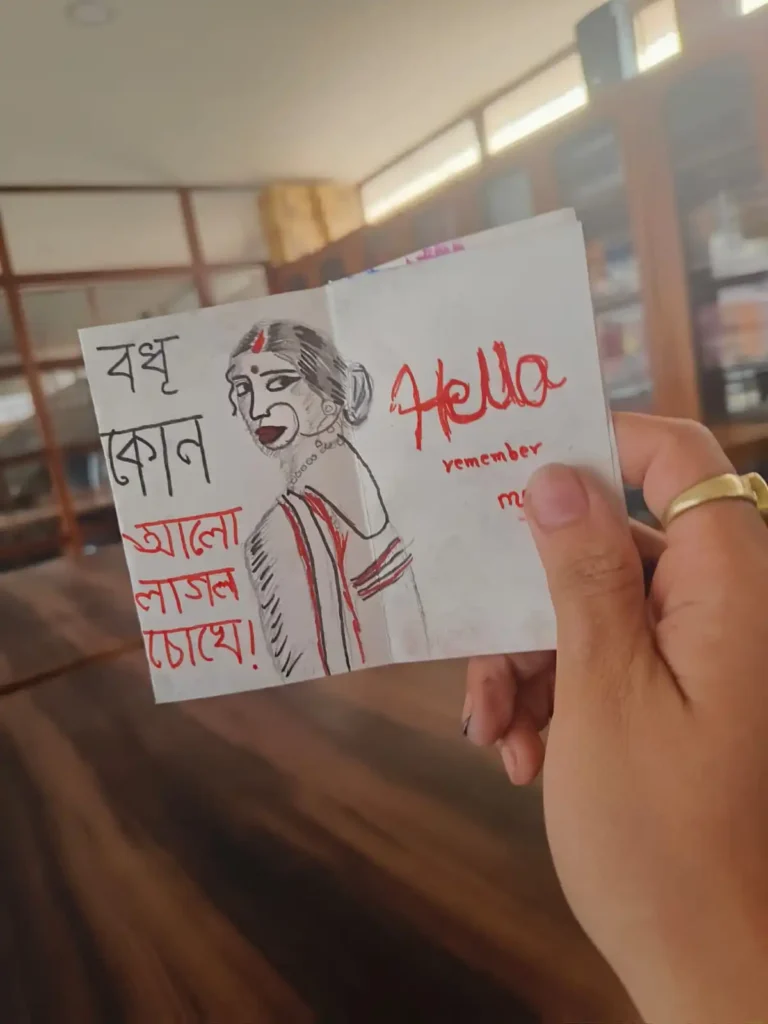 বধূ
কোন
আলো
লাগল
চোখে!
Hello
remember